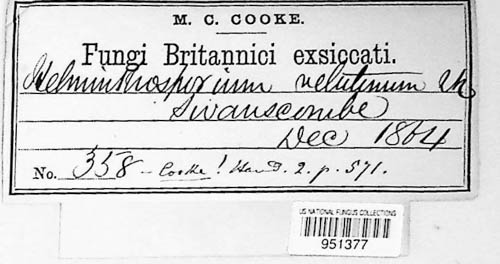 M. C. COOKE.
Fungi Britannici exsiccati.
Helminthosporium velutinum Lk
Swanscombe
Dec 1864
No. 358 - Cooke! Hand. 2. p. 571.
US NATIONAL FUNGUS COLLECTIONS
951377